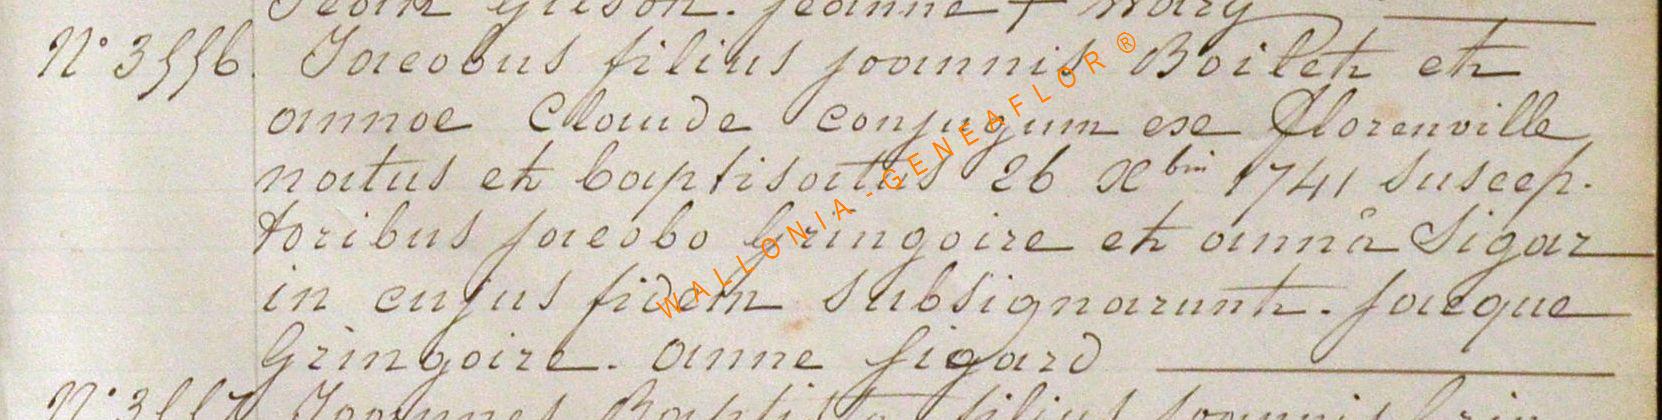 Jean Gilson. Jeanne + Mary
N° 3556. Jacobus filius joannis Boileh et
annoe Claude conjugum exe Florenville
natus et baptisatus 26 xbris 1741 suscep.
toribus jacobo Gringoire et annâ Sigar
in cujus fidem subsignarunt. jacque
Gringoire. anne sigard
N° 3557 Joannes Baptista filius joannis
WALLONIA - GENEAFLOR ®